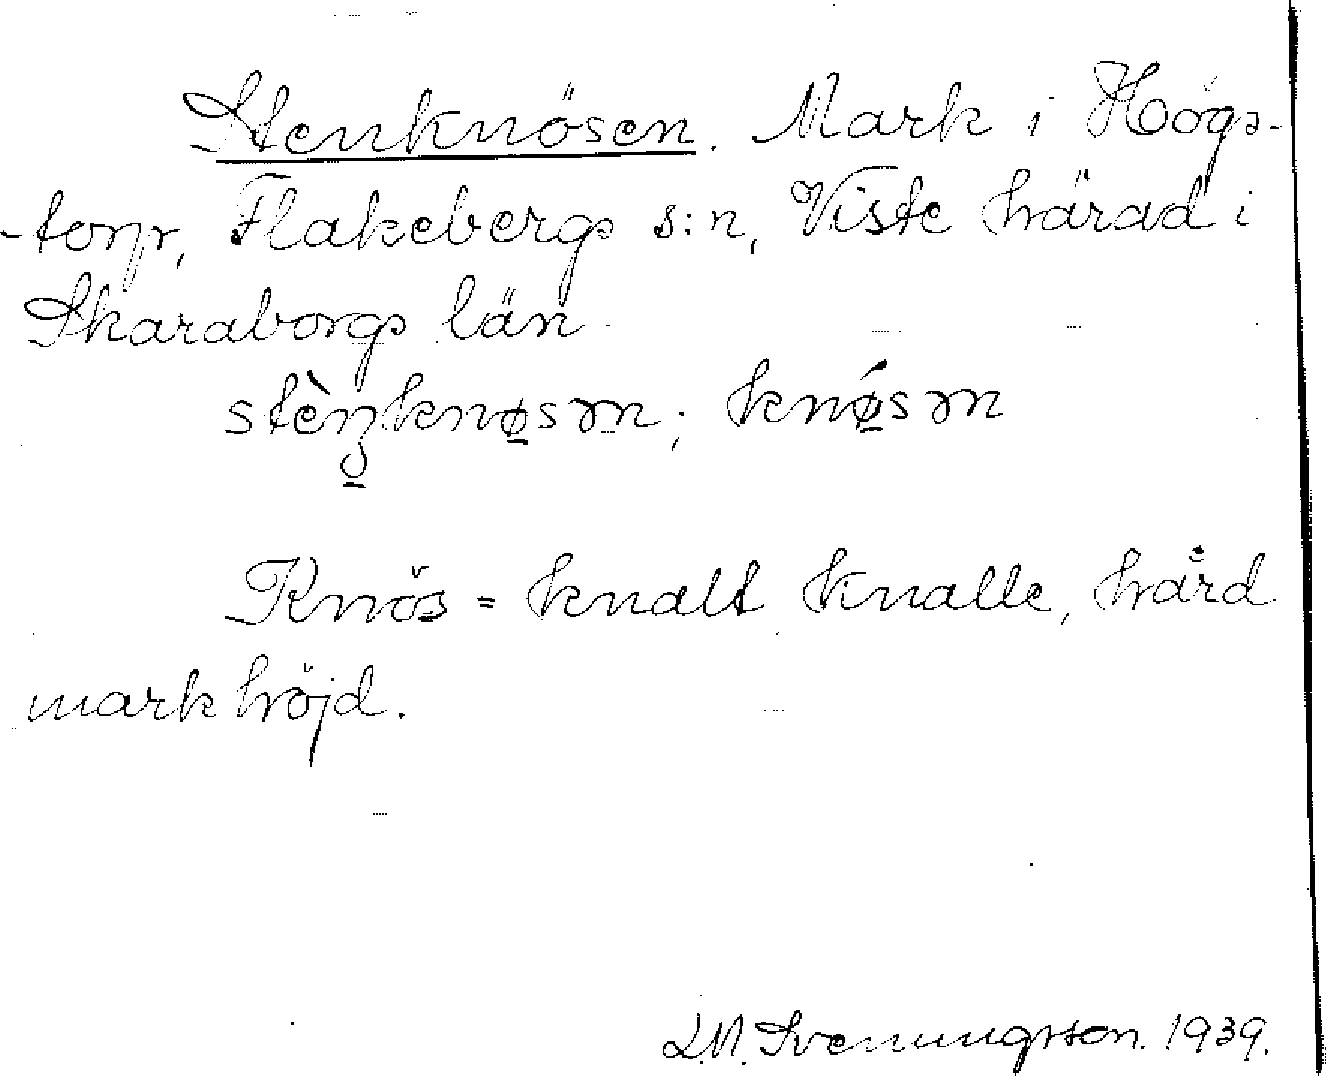 Stenknösen. Mark i Högs-
-torp, Flakebergs s:n, Viste härad i
Skaraborgs län
knǿ̱sən
Knös = knalt knalle, hård
mark höjd.
L.M. Svenungsson. 1939.